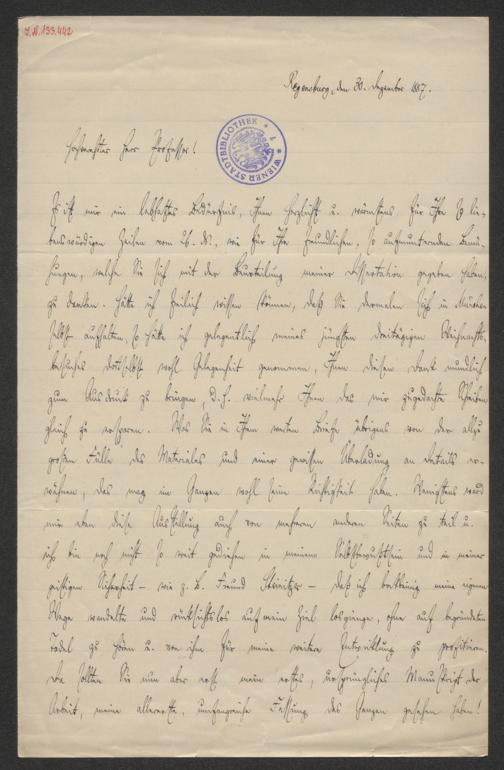 J.N. 133.442
Regensburg, den 30. Dezember 1887.
WIENER STADTBIBLIOTHEK
Hochverehrter Herr Professor!
Es ist mir ein lebhaftes Bedürfnis, Ihnen herzlichst u. wärmstens für Ihre so lie-
benswürdigen Zeilen vom 26. ds., wie für Ihre freundlichen, so aufmunternden Bemü-
hungen, welche Sie sich mit der Beurteilung meiner Dissertation gegeben haben,
zu danken. Hätte ich freilich wissen können, daß Sie dermalen sich in München
selbst aufhalten, so hätte ich gelegentlich meines jüngsten dreitägigen Weihnachts-
besuches dortselbst wohl Gelegenheit genommen, Ihnen diesen Dank mündlich
zum Ausdruck zu bringen, d. h. vielmehr Ihnen das mir zugedachte Schreiben
gleich zu ersparen. Was Sie in Ihrem werten Briefe übrigens von der allzu
großen Fülle des Materiales und einer gewissen Überladung an Details er-
wähnen, das mag im Ganzen wohl seine Richtigkeit haben. Wenigstens ward
mir eben diese Ausstellung auch von mehreren anderen Seiten zu teil u.
ich bin noch nicht so weit gediehen in meinem Selbstbewußtsein und in meiner
geistigen Sicherheit – wie z. B. Freund Steinitzer – daß ich meine eigenen
Wege wandelte und rücksichtslos auf mein Ziel losginge, ohne auf begründeten
Tadel zu hören u. von ihm für meine weitere Entwicklung zu profitieren.
Wie sollten Sie nun aber erst mein erstes, ursprüngliches Manuskript der
Arbeit, meine allererste, umfangreiche Fassung des Ganzen gesehen haben!